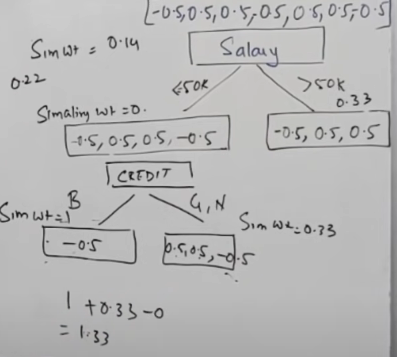 [-0.5,0.5,0.5,0.5,0.5,0.5,-0.5]
Sim Wt = 0.14
Salary
0.22
≤50K
>50K
0.33
Similarity wt = 0.
-0.5, 0.5, 0.5, -0.5
-0.5, 0.5, 0.5
CREDIT
B
G, N
Sim wt = 1
Sim Wt = 0.33
-0.5
0.5, 0.5, -0.5
1 + 0.33 - 0
= 1.33